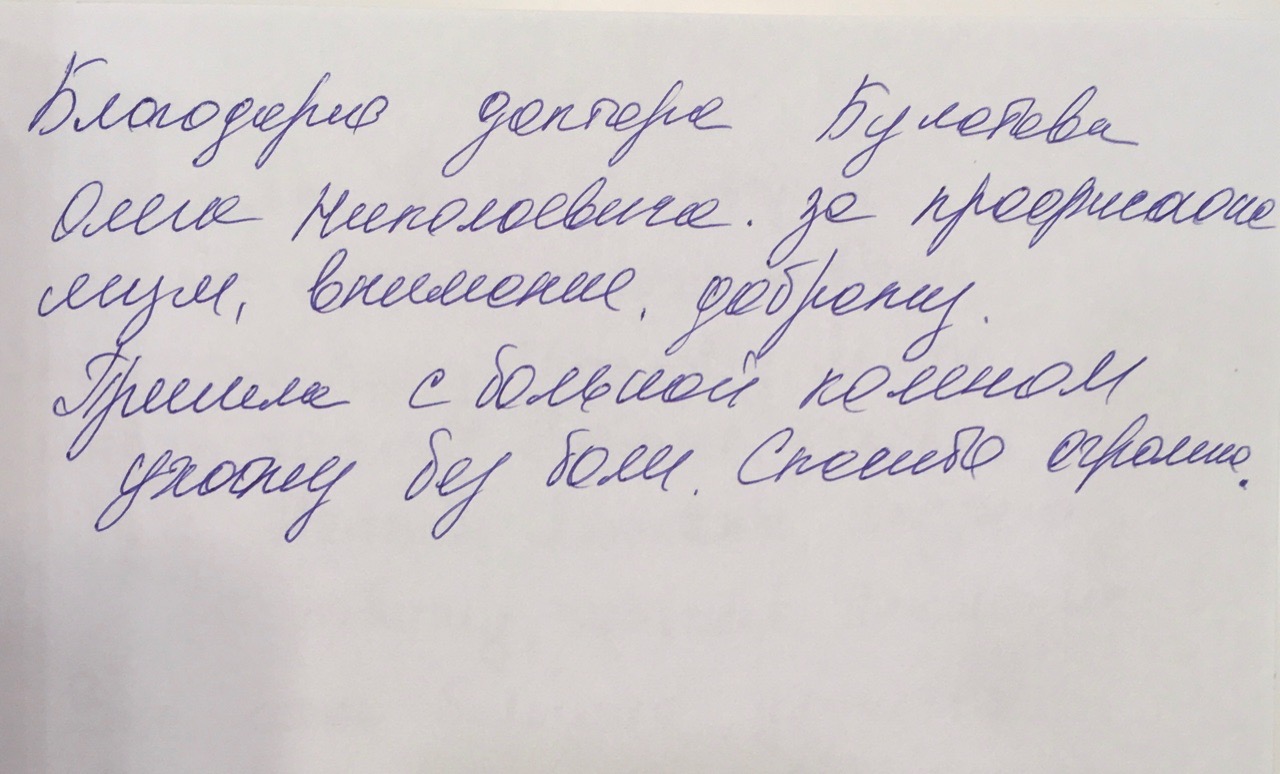 Благодарю доктора Булатова
Олега Николаевича. за профессиона
лизм, внимание, доброту.
Пришла с больной коленом
ухожу без боли. Спасибо огромное.